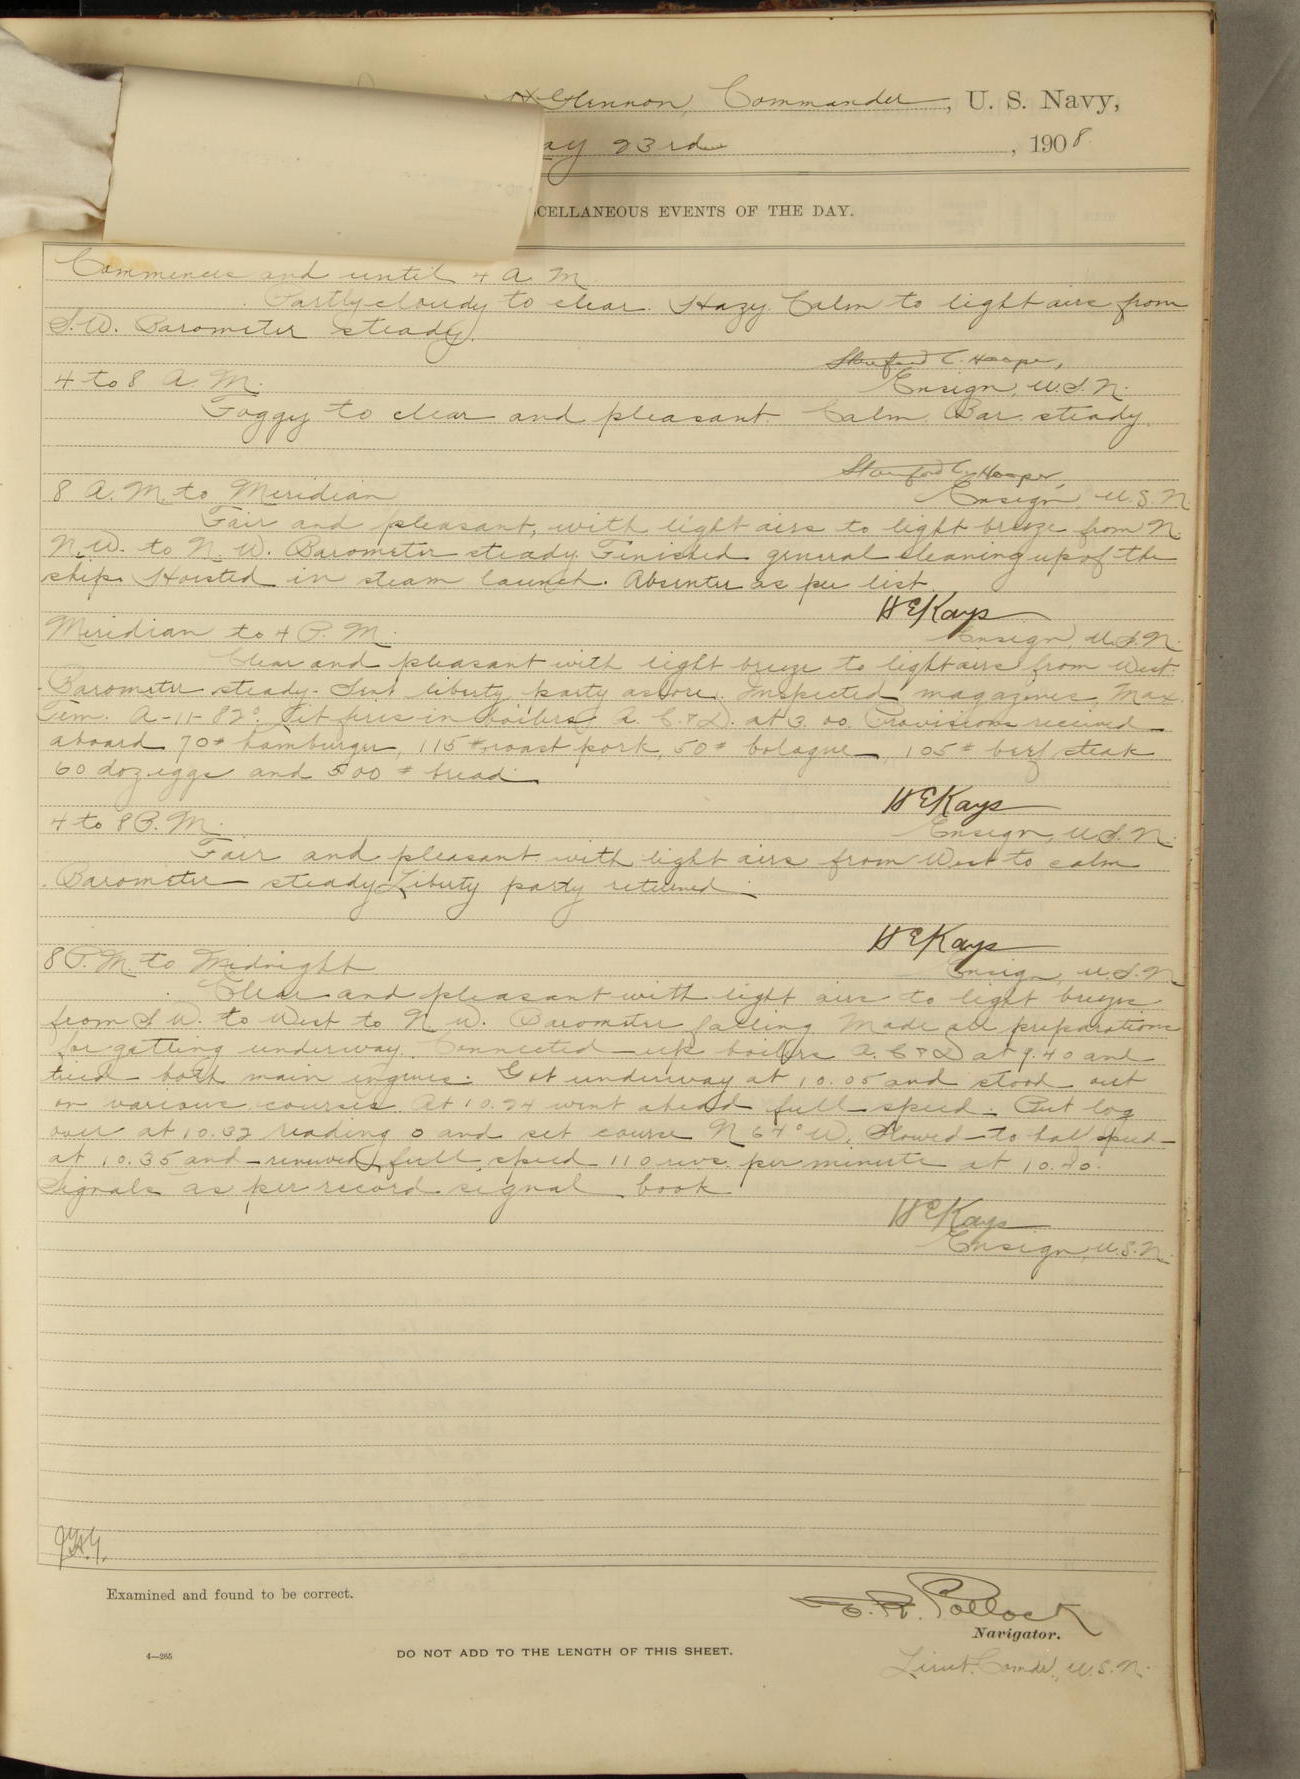 Glennon, Commander, U. S. Navy,
ay 23rd, 1908
SCELLANEOUS EVENTS OF THE DAY.
Commences and until 4 A M
Partly cloudy to clear. Hazy. Calm to light airs from
S.W. Barometer steady.
Stanford C. Hooper,
4 to 8 A. M.
Ensign, U.S.N.
Foggy to clear and pleasant. Calm. Bar. steady.
Stanford C. Hooper,
8 A. M. to Meridian
Ensign, U.S.N.
Fair and pleasant, with light airs to light breeze from N.
N.W. to N.W. Barometer steady. Finished general cleaning up of the
ship. Hoisted in steam launch. Absentees as per list
H E Kays
Meridian to 4 P. M.
Ensign, U.S.N.
Clear and pleasant with light breeze to light airs from West.
Barometer steady. Sent liberty party ashore. Inspected magazines, Max.
Tem. A-11-82°. Lit fires in boilers A. C. & D. at 3.00. Provisions received
aboard 70# hamburger, 115# roast pork, 50# bologne, 105# beef steak
60 doz eggs and 500# bread.
H E Kays
4 to 8 P. M.
Ensign, U.S.N.
Fair and pleasant with light airs from West to calm
Barometer steady Liberty party returned.
H E Kays
8 P. M. to Midnight
Ensign, U.S.N.
Clear and pleasant with light airs to light breeze
from S W. to West to N W. Barometer falling Made all preparations
for getting underway. Connected up boilers A. C & D at 9.40 and
tried both main engines. Got underway at 10.05 and stood out
on various courses. At 10.24 went ahead full speed. Put log
over at 10.32 reading 0 and set course N 64° W. Slowed to half speed
at 10.35 and renewed full speed 110 revs. per minute at 10.40.
Signals as per record signal book
H E Kays
Ensign, U.S.N.
Examined and found to be correct.
E. R. Pollock
Navigator.
4—265
DO NOT ADD TO THE LENGTH OF THIS SHEET.
Lieut. Comdr., U.S.N.